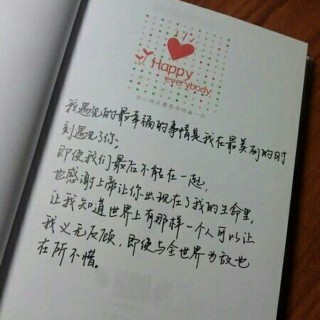 Happy
everybody
我遇见的最幸福的事情是我在最美的时
刻遇见了你。
即使我们最后不能在一起,
也感谢上帝让你出现在了我的生命里,
让我知道世界上有那样一个人可以让
我义无反顾,即使与全世界为敌也
在所不惜。